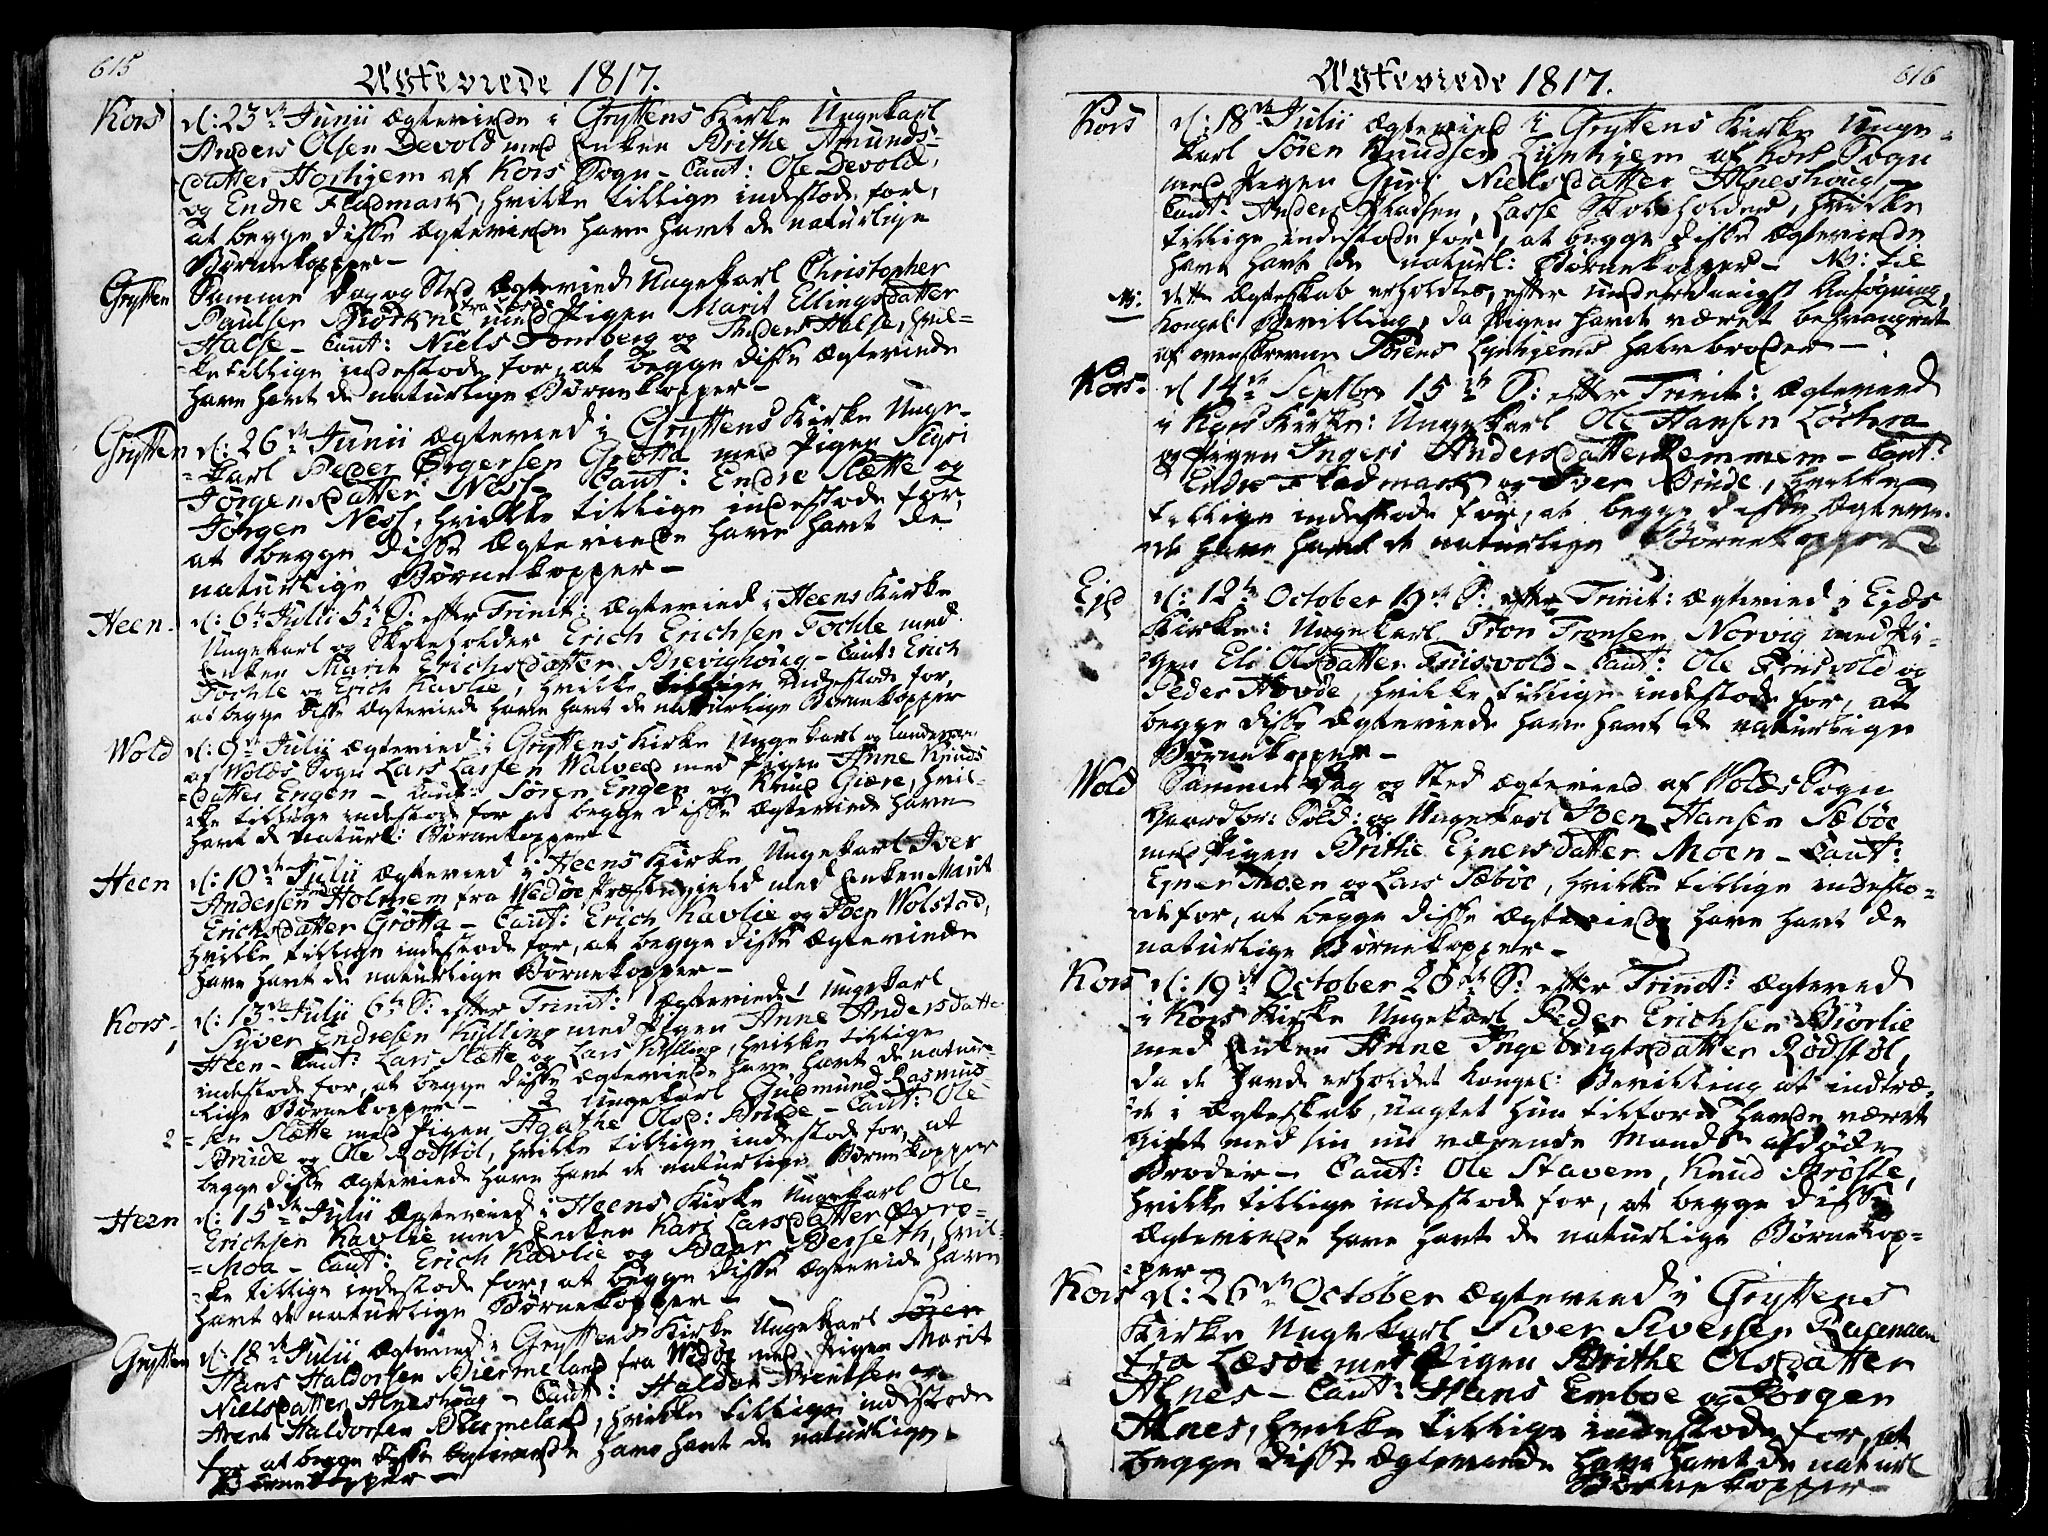 615
Ægteviede 1817.
Kors
d: 23de Junii Ægteviede i Gryttens Kirke Ungekarl
Anders Olsen Devold med Enken Brithe Amunds-
datter Horhjem af Kors Sogn - Caut: Ole Devold,
og Endre Fladmark, hvilke tillige indestode for,
at begge disse Ægteviede have havt de naturlige
Børnekopper -
Grytten
Samme Dag og Sted Ægteviede Ungekarl Christopher
Paulsen med Pigen Marit Ellingsdatter
Halse - Caut: Niels Tomberg og Anders Halse, hvil-
ke tillige indestode for, at begge disse Ægteviede
have havt de naturlige Børnekopper -
Grytten
d: 26de Junii Ægteviede i Gryttens Kirke Unge-
karl Peder Ørgersen Grötta med Pigen Sigri
Jörgensdatter Ness - Caut: Endre Slette og
Jörgen Ness, hvilke tillige indestode for
at begge disse Ægteviede have havt de
naturlige Børnekopper -
Heen
d: 6te Julii 5te S: efter Trinit: Ægteviede i Heens Kirke
Ungekarl og Skoleholder Erich Erichsen Tochle med
Enken Marit Erichsdatter Brevighoug - Caut: Erich
Tochle og Erich Kavlie, hvilke tillige indestode for,
at begge disse Ægteviede have havt de naturlige Børnekopper
Wold
d: 9de Julii Ægteviede i Gryttens Kirke Ungekarl og
af Wolds Sogn Lars Larsen Walved med Pigen Anne Knuds
datter Engen - Caut: Sören Engen og Knud Giære, hvil-
ke tillige indestode for at begge disse Ægteviede have
havt de naturl: Børnekopper
Heen
d: 10de Julii Ægteviede i Heens Kirke Ungekarl Iver
Andersen Holmem fra Wedöe Præstegield med Enken Marit
Erichsdatter Grötta - Caut: Erich Kavlie og Joen Wolstad,
hvilke tillige indestode for, at begge disse Ægteviede
have havt de naturlige Børnekopper -
Kors,
d: 13de Julii 6te S: efter Trinit: Ægteviede 1 Ungekarl
Syver Endresen Kylling med Pigen Anne Andersdatter
Heen - Caut: Lars Slette og Lars Kylling, hvilke tillige
indestode for, at begge disse Ægteviede have havt de natur-
lige Børnekopper - 2 Ungekarl Gudmund Rasmus-
2
sen Slette med Pigen Agathe Olsd: Brude - Caut: Ole
Brude og Ole Rödstöl, hvilke tillige indestode for, at
begge disse Ægteviede have havt de naturlige Børnekopper
Heen
d: 15de Julii Ægteviede i Heens Kirke Ungekarl Ole
Erichsen Kavlie med Enken Kari Larsdatter Øvre-
Moa - Caut: Erich Kavlie og Baar Berseth, hvil-
ke tillige indestode for, at begge disse Ægteviede have
havt de naturlige Børnekopper -
Grytten
d: 18de Julii Ægteviede i Gryttens Kirke Ungekarl Sören
Hans Haldorsen Biermeland fra Wedöe med Pigen Marit
Nielsdatter Alneshoug - Caut: Haldor Arentsen og
Arent Haldorsen Biermeland, hvilke tillige indestode
for at begge disse Ægteviede have havt de naturlige
Børnekopper -
616
Ægteviede 1817.
Kors
d: 18de Julii Ægteviede i Gryttens Kirke Unge-
karl Sören Knudsen Lynhjem af Kors Sogn
med Pigen Guri Nielsdatter Alneshoug,
Caut: Anders Madsen, Lasse Skoleholder, hvilke
tillige indestode for, at begge disse Ægteviede
have havt de naturl: Børnekopper - NB: til
NB:
dette Ægteskab erholdtes, efter underdanigst Ansøgning,
Kongel: Bevilling, da Pigen havde været besvangret
af ovenskrevne Sörens Lynhjems halvbroder -
Kors -
d 14de Septbr 15de S: efter Trinit: Ægteviede
i Kors Kirke: Ungekarl Ole Hansen Löthera
og Pigen Ingeri Andersdatter Remmem - Caut:
Endre Fladmark og Iver Brude, hvilke
tillige indestode for, at begge disse Ægtevie-
de have havt de naturlige Børnekopper
Ejd
d: 12te October 19de S: efter Trinit: Ægteviede i Ejds
Kirke: Ungekarl Tron Tronsen Norvig med Pi-
gen Eli Olsdatter Friisvold - Caut: Ole Friisvold og
Peder Hovde, hvilke tillige indestode for, at
begge disse Ægteviede have havt de naturlige
Børnekopper -
Wold
Samme Dag og Sted Ægteviede af Wolds Sogn
Sold: og Ungekarl Joen Hansen Sæböe
med Pigen Brithe Ejnersdatter Moen - Caut:
Ejner Moen og Lars Sæböe, hvilke tillige indesto-
de for, at begge disse Ægteviede have havt de
naturlige Børnekopper -
Kors
d: 19de October 20de S: efter Trinit: Ægteviede
i Kors Kirke Ungekarl Peder Erichsen Biorlie
med Enken Anne Ingebrigtsdatter Rödstöl,
da de havde erholdet Kongel: Bevilling at indtræ-
de i Ægteskab, uagtet hun tilforn havde været
givt med sin nu værende Mands afdøde
Broder - Caut: Ole Stavem, Knud Bröste,
hvilke tillige indestode for, at begge disse
Ægteviede have havt de naturlige Børnekop-
per -
Kors
d: 26de October Ægteviede i Gryttens
Kirke Ungekarl Siver Siversen
fra Læsöe med Pigen Brithe Olsdatter
Alnes - Caut: Hans Emboe og Jörgen
Alnes, hvilke tillige indestode for, at
begge disse Ægteviede have havt de naturl
Børnekopper -